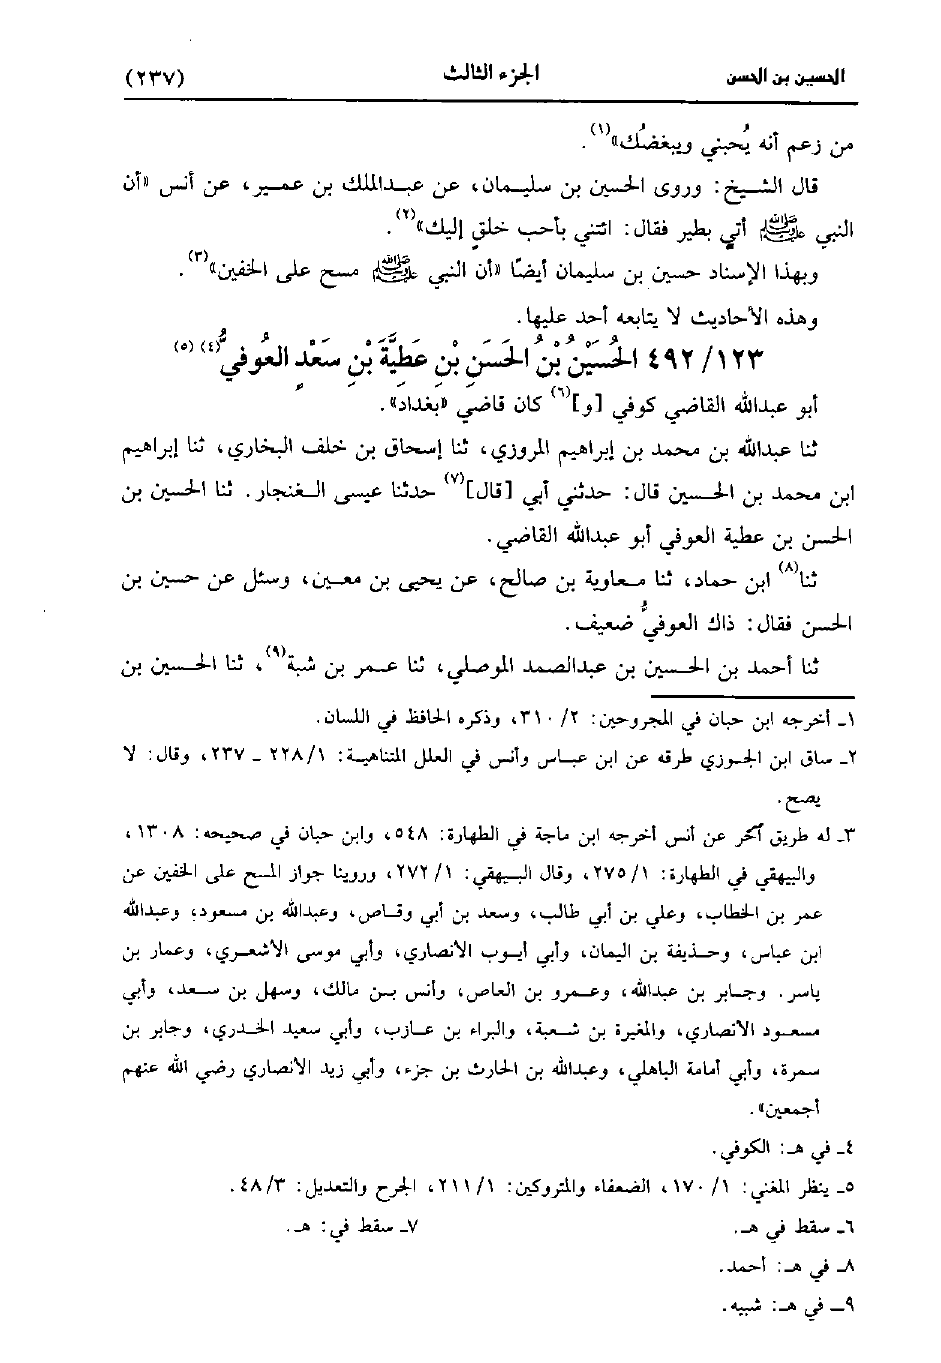 الحسين بن الحسن الجزء الثالث (٢٣٧)
من زعم أنه يُحبني ويبغضُك»(١).
قال الشيخ: وروى الحسين بن سليمان، عن عبدالملك بن عمير، عن أنس «أن
النبي ﷺ أتي بطير فقال: ائتني بأحب خلقٍ إليك»(٢).
وبهذا الإسناد حسين بن سليمان أيضًا «أن النبي ﷺ مسح على الخفين»(٣).
وهذه الأحاديث لا يتابعه أحد عليها.
٤٩٢/١٢٣ الحُسَيْنُ بْنُ الحَسَنِ بْنِ عَطِيَّةَ بْنِ سَعْدٍ العُوفيُّ(٤)(٥)
أبو عبدالله القاضي كوفي [و](٦) كان قاضي «بغداد».
ثنا عبدالله بن محمد بن إبراهيم المروزي، ثنا إسحاق بن خلف البخاري، ثنا إبراهيم
ابن محمد بن الحسين قال: حدثني أبي [قال](٧) حدثنا عيسى الغنجار. ثنا الحسين بن
الحسن بن عطية العوفي أبو عبدالله القاضي.
ثنا(٨) ابن حماد، ثنا معاوية بن صالح، عن يحيى بن معين، وسئل عن حسين بن
الحسن فقال: ذاك العوفيُّ ضعيف.
ثنا أحمد بن الحسين بن عبدالصمد الموصلي، ثنا عمر بن شبة(٩)، ثنا الحسين بن
١ـ أخرجه ابن حبان في المجروحين: ٢/ ٣١٠، وذكره الحافظ في اللسان.
٢ـ ساق ابن الجوزي طرقه عن ابن عباس وأنس في العلل المتناهية: ١/ ٢٢٨ ـ ٢٣٧، وقال: لا
يصح.
٣ـ له طريق آخر عن أنس أخرجه ابن ماجة في الطهارة: ٥٤٨، وابن حبان في صحيحه: ١٣٠٨،
والبيهقي في الطهارة: ١/ ٢٧٥، وقال البيهقي: ١/ ٢٧٢، وروينا جواز المسح على الخفين عن
عمر بن الخطاب، وعلي بن أبي طالب، وسعد بن أبي وقاص، وعبدالله بن مسعود، وعبدالله
ابن عباس، وحذيفة بن اليمان، وأبي أيوب الأنصاري، وأبي موسى الأشعري، وعمار بن
ياسر. وجابر بن عبدالله، وعمرو بن العاص، وأنس بن مالك، وسهل بن سعد، وأبي
مسعود الأنصاري، والمغيرة بن شعبة، والبراء بن عازب، وأبي سعيد الخدري، وجابر بن
سمرة، وأبي أمامة الباهلي، وعبدالله بن الحارث بن جزء، وأبي زيد الأنصاري رضي الله عنهم
أجمعين».
٤ـ في هـ: الكوفي.
٥ـ ينظر المغني: ١/ ١٧٠، الضعفاء والمتروكين: ١/ ٢١١، الجرح والتعديل: ٣/ ٤٨.
٦ـ سقط في هـ. ٧ـ سقط في: هـ.
٨ـ في هـ: أحمد.
٩ـ في هـ: شبيه.